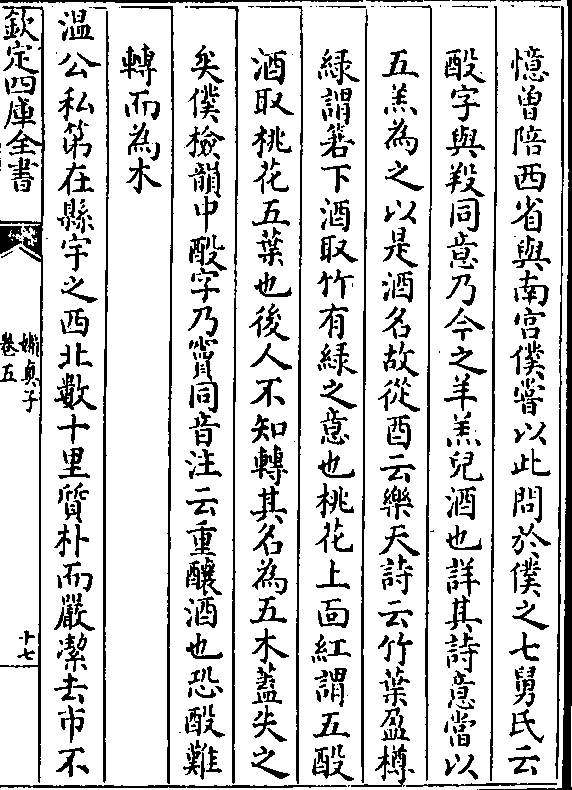 憶曾陪西省與南宮僕嘗以此問於僕之七舅氏云
酘字與羖同意乃今之羊羔兒酒也詳其詩意當以
五羔為之以是酒名故從酉云樂天詩云竹葉盈樽
緑謂箬下酒取竹有緑之意也桃花上面紅謂五酘
酒取桃花五葉也後人不知轉其名為五木蓋失之
矣僕檢韻中酘字乃竇同音注云重釀酒也恐酘難
轉而為木
温公私第在縣宇之西北數十里質朴而嚴潔去市不
欽定四庫全書
嬾真子
卷五
十七